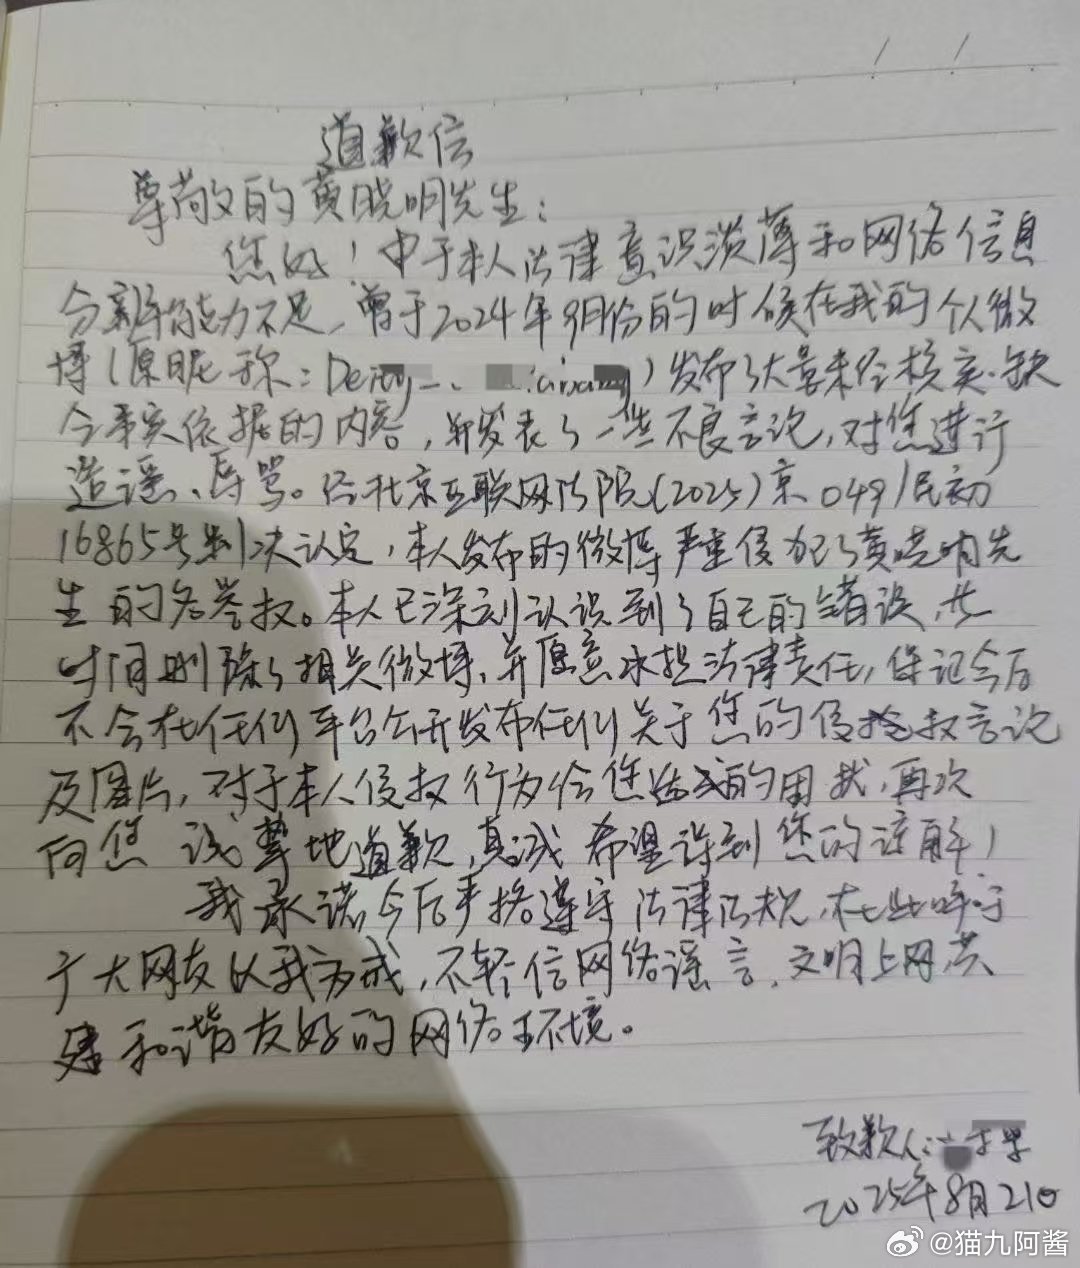 道歉信
尊敬的黄晓明先生：
您好！由于本人法律意识淡薄和网络信息
分辨能力不足，曾于2024年9月份的时候在我的个微
博（原昵称：Deity_）发布了大量未经核实、缺
令事实依据的内容，并发表了一些不良言论，对您进行
造谣、辱骂。经北京互联网法院（2025）京0491民初
16865号判决认定，本人发布的微博严重侵犯了黄晓明先
生的名誉权。本人已深刻认识到了自己的错误，
时间删除了相关微博，并愿意承担法律责任，保记今后
不会在任何平台公开发布任何关于您的侵权言论
及图片，对于本人侵权行为给您造成的困扰，再次
向您诚挚地道歉，真诚希望得到您的谅解！
我承诺今后严格遵守法律法规，在此呼吁
广大网友以我为戒，不轻信网络谣言，文明上网共
建和谐友好的网络环境。
致歉人：
2025年8月21日
@猫九阿酱